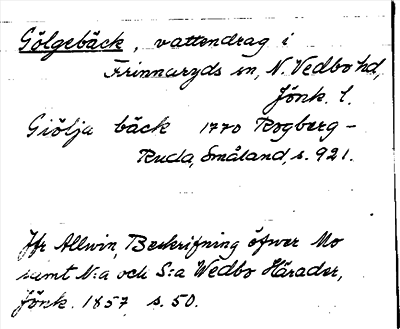 Gölgebäck, vattendrag i
Frinnaryds sn, N. Vedbo hd,
Jönk. l.
Giölja bäck 1770 Rogberg-
Ruda, Småland, s. 921.
Jfr Allvin, Beskrifning öfwer Mo
samt N:a och S:a Wedbo Härader,
Jönk. 1857 s. 50.